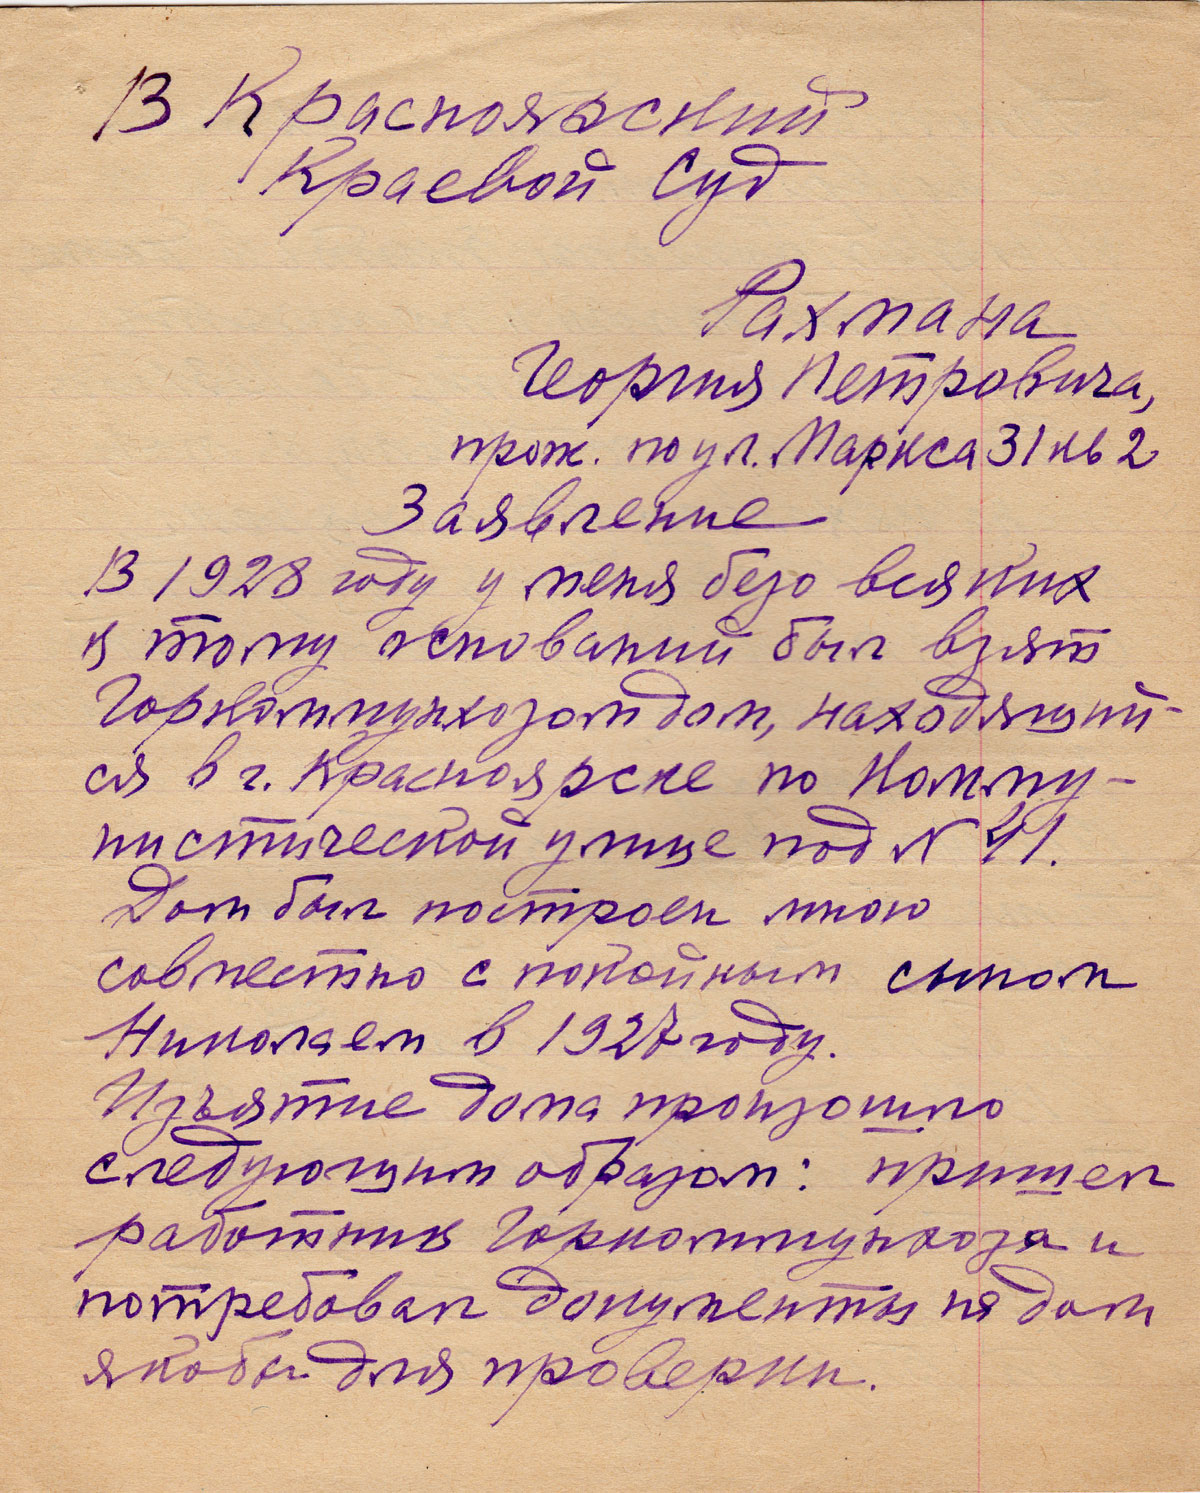 В Красноярский
Краевой Суд
Рахмана
Георгия Петровича,
прож. по ул. Маркса 31 кв 2
Заявление
В 1928 году у меня безо всяких
к тому оснований был взят
Горкоммунхозом дом, находящий-
ся в г. Красноярске по Комму-
нистической улице под N 41.
Дом был построен мною
совместно с покойным сыном
Николаем в 1927 году.
Изъятие дома произошло
следующим образом: пришел
работник Горкоммунхоза и
потребовал документы на дом
якобы для проверки.